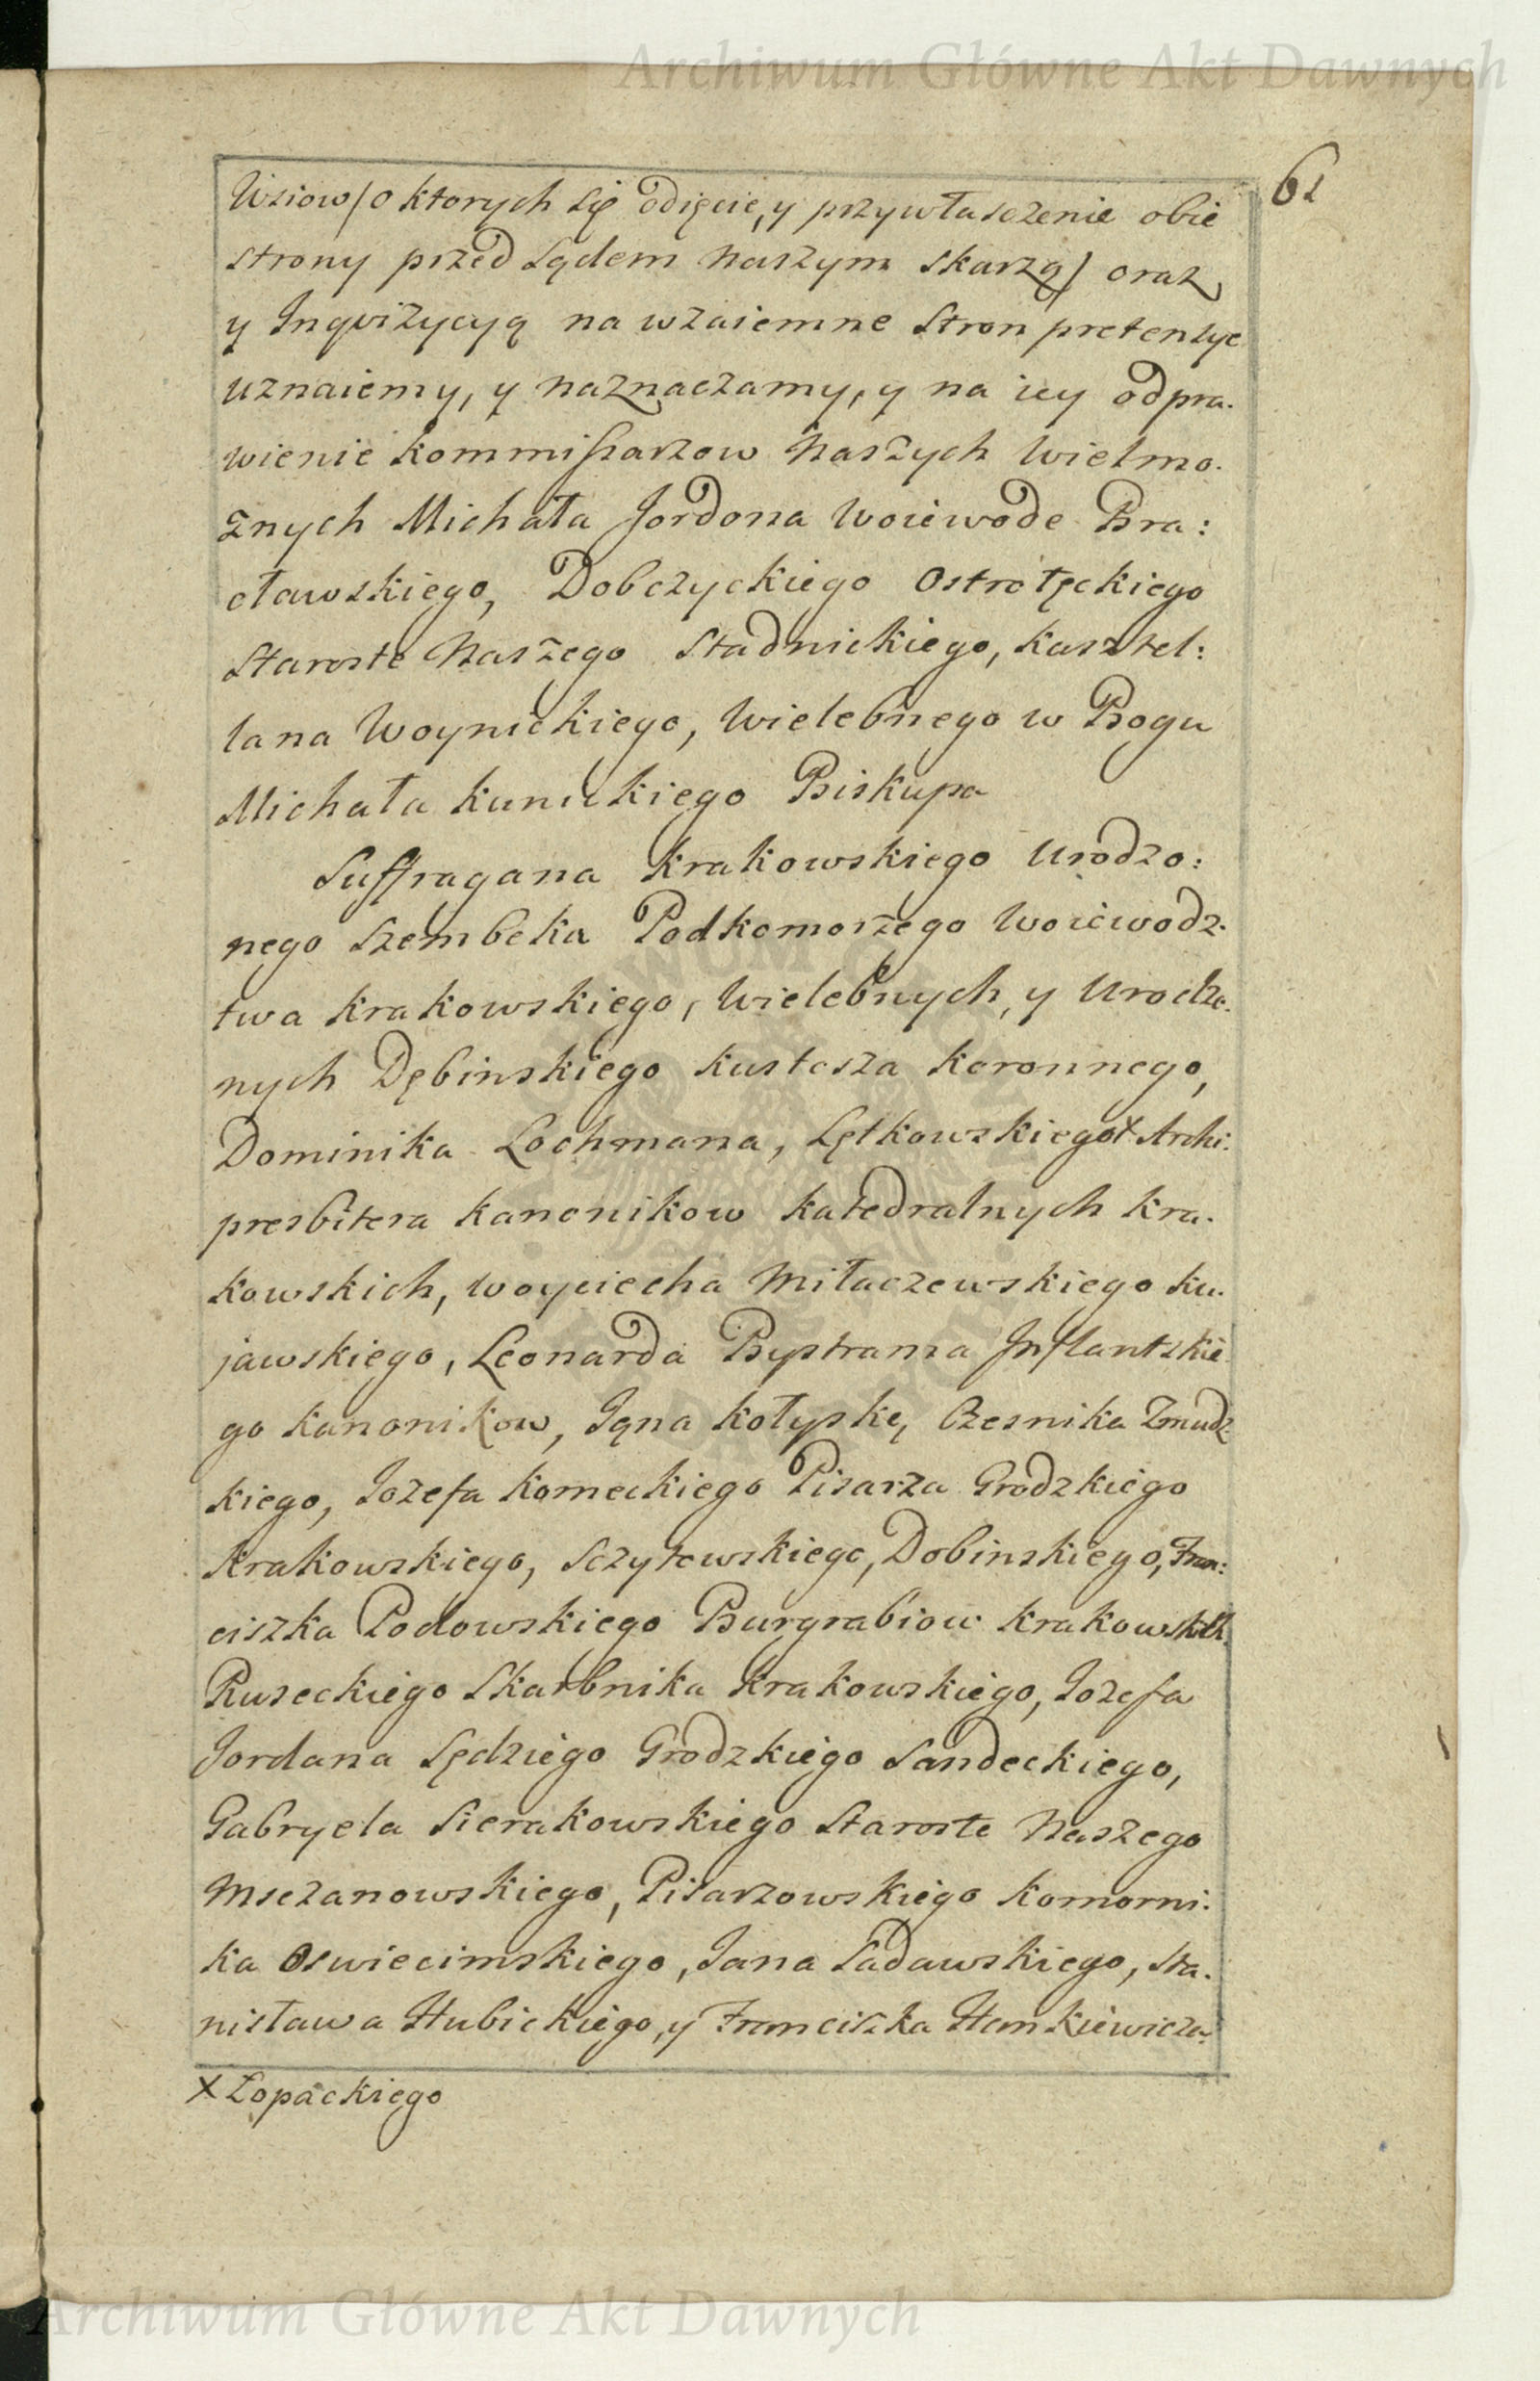 Archiwum Główne Akt Dawnych
61
Wsiow/o ktorych się odięcie, y przywłasczenie obie
strony przed Sądem Naszym skarżą/ oraz
y Inqvizycyą na wzaiemne Stron pretensye
uznaiemy, y naznaczamy, y na iey odpra.
wienie Kommissarzow Naszych Wielmo.
żnych Michała Jordona Woiewode Bra:
cławskiego, Dobczyckiego Ostrołęckiego
Staroste Naszego Stadnickiego, Kasztel:
lana Woynickiego, Wielebnego w Bogu
Michała Kunickiego Biskupa
Suffragana Krakowskiego Urodzo:
nego Szembeka Podkomorzego Woiewodz.
twa Krakowskiego, Wielebnych, y Urodzo.
nych Dębinskiego Kustosza Koronnego,
Dominika Lochmana, Lętkowskiego x Archi:
presbitera Kanonikow Katedralnych Kra.
kowskich, Woyciecha Miłaczewskiego Ku.
jawskiego, Leonarda Bystrama Inflantskie
go Kanonikow, Jgna Kołyskę, Czesnika Zmudz.
kiego, Jozefa Komeckiego Pisarza Grodzkiego
Krakowskiego, Sczytowskiego, Dobinskiego, Fran:
ciszka Podowskiego Burgrabiow Krakowskich
Ruseckiego Skarbnika Krakowskiego, Jozefa
Jordana Sędziego Grodzkiego Sandeckiego,
Gabryela Sierakowskiego Staroste Naszego
Msczanowskiego, Pisarzowskiego Komorni.
ka Oswiecimskiego, Jana Sadawskiego, Sta.
nisława Hubickiego, y Franciszka Hankiewicza.
x Łopackiego
Archiwum Główne Akt Dawnych